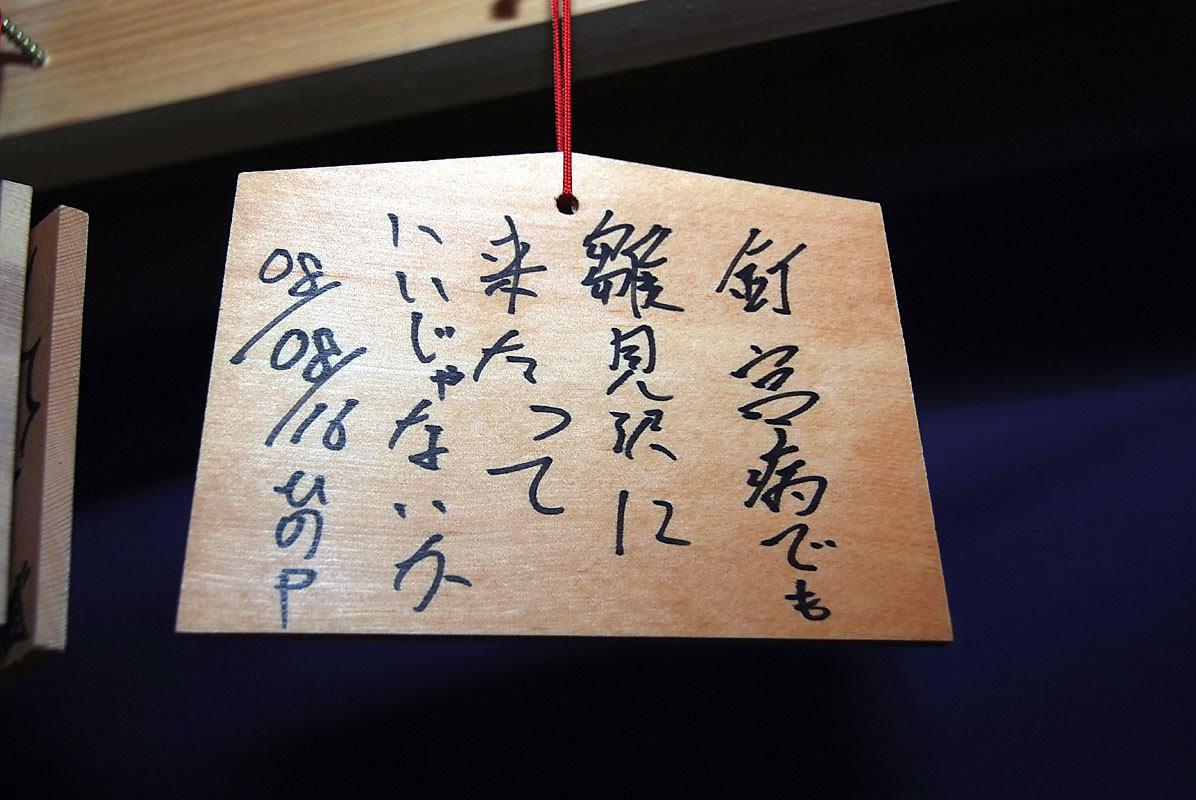 釘宮病でも
雛見沢に
来たって
いいじゃないか
08/08/16 ひのP